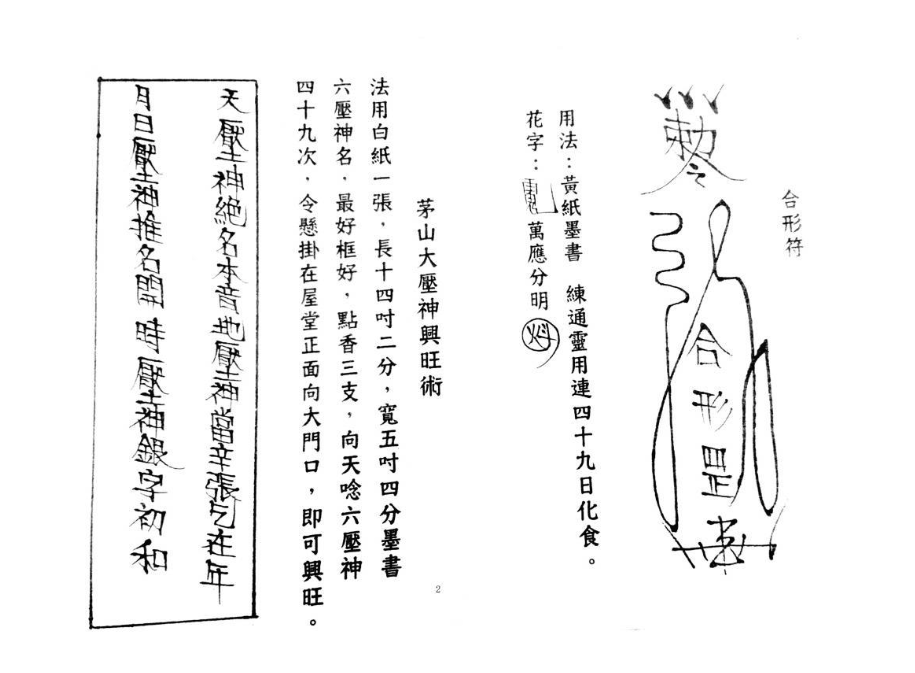 合形符
敕令
合形罡
用法：黃紙墨書　練通靈用連四十九日化食。
花字：萬應分明
茅山大壓神興旺術
法用白紙一張．長十四吋二分，寬五吋四分墨書
六壓神名．最好框好，點香三支，向天唸六壓神
四十九次．令懸掛在屋堂正面向大門口，即可興旺。
天壓神絕名本音地壓神當辛張乞在年
月日壓神推名開　時壓神銀字初和
2